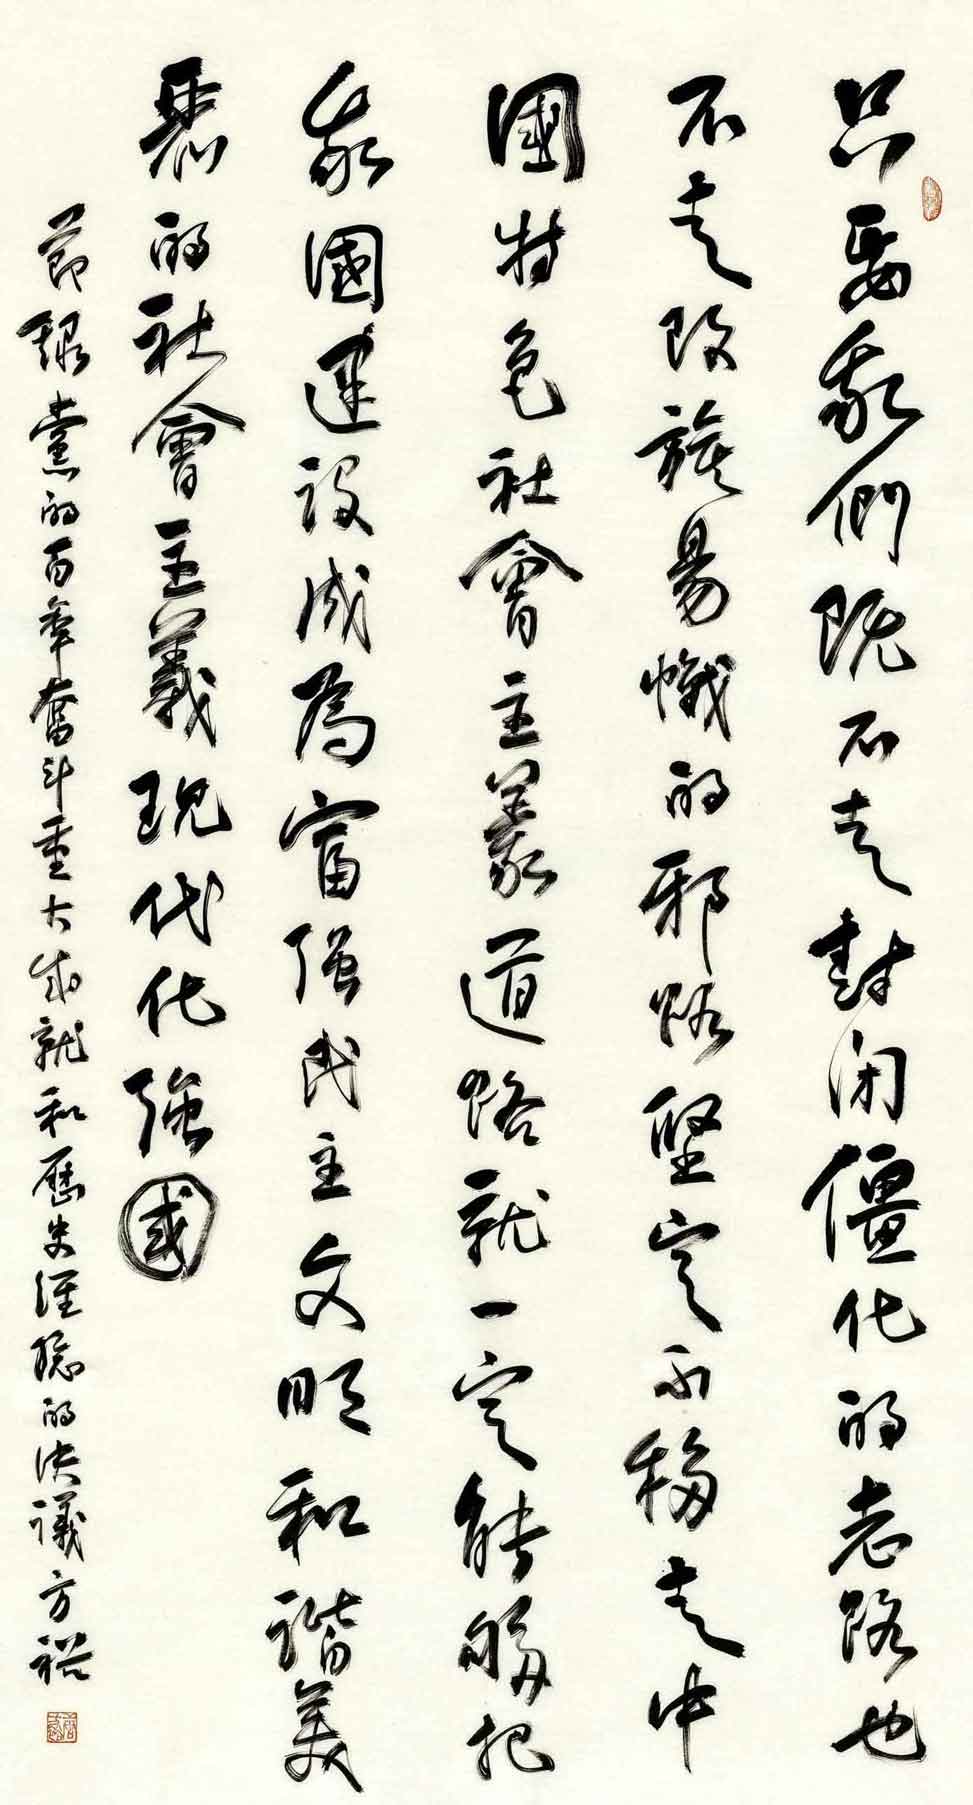 只要我們既不走封闭僵化的老路也
不走改旗易幟的邪路堅定不移走中
國特色社會主義道路就一定能够把
我國建设成為富强民主文明和諧美
丽的社會主義現代化強國
節録党的百年奮斗重大成就和歷史經驗的决議方裕